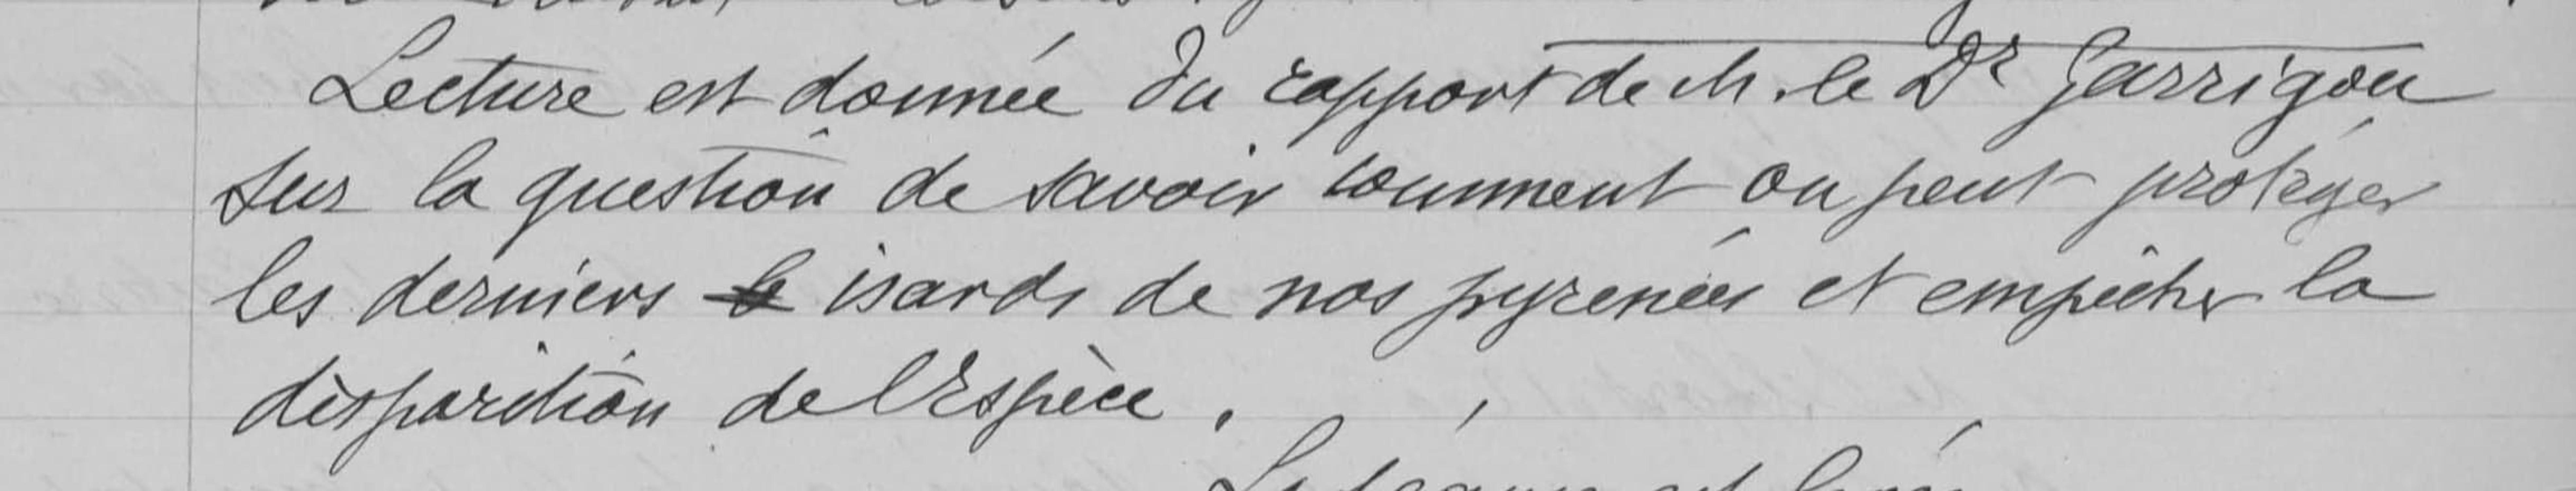 Lecture est donnée du rapport de M. le Dr Garrigou
sur la question de savoir comment on peut protéger
les derniers isards de nos pyrenées et empêcher la
disparition de l'Espèce.
La séance est levée